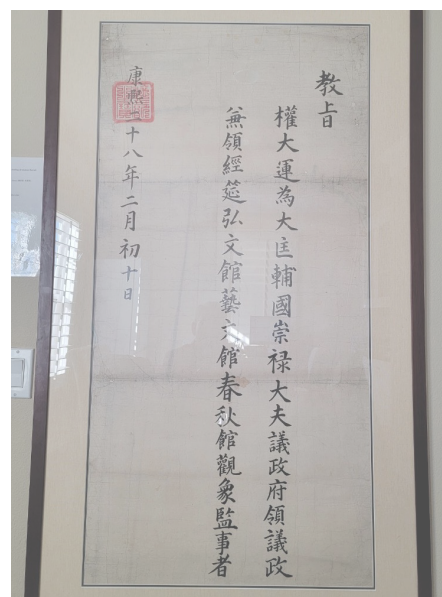 教旨
權大運為大匡輔國崇禄大夫議政府領議政
兼領經筵弘文館藝文館春秋館觀象監事者
康熙二十八年二月初十日